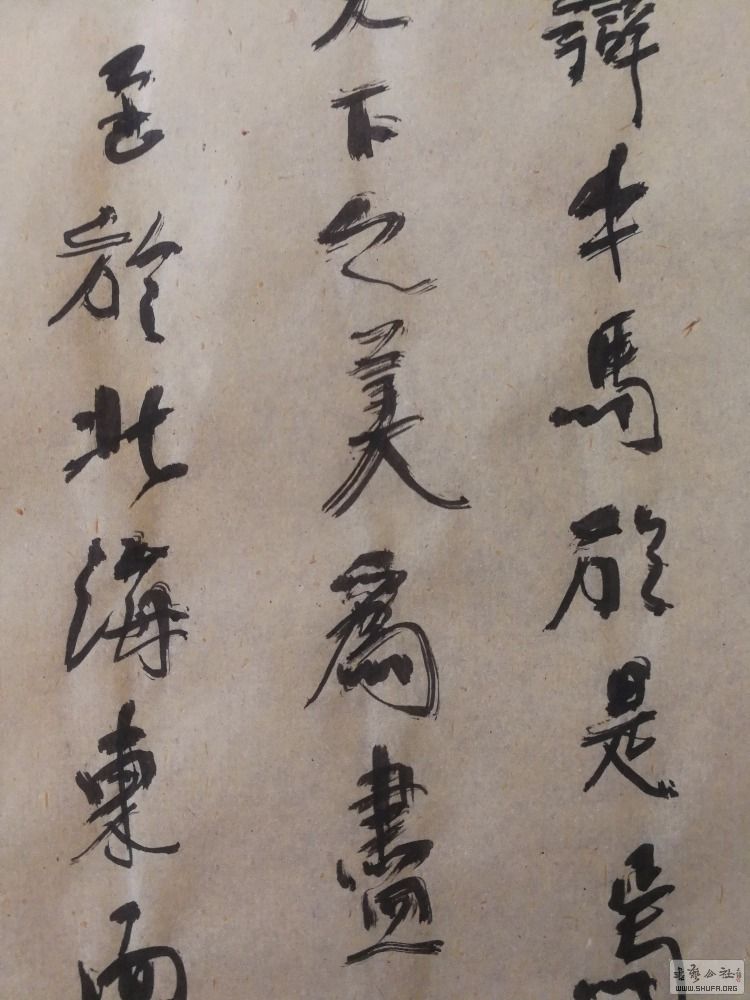 辯牛馬於是焉
天下之美爲盡
至於北海東面
书艺公社
WWW.SHUFA.ORG